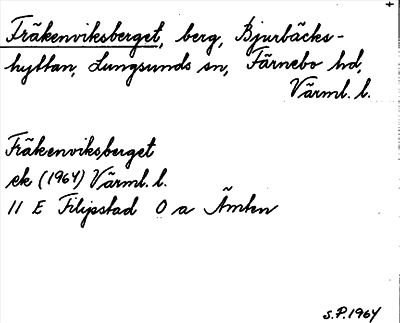 Fräkenviksberget, berg, Bjurbäcks-
hyttan, Lungsunds sn, Färnebo hd,
Värml. l.
Fräkenviksberget
ek (1964) Värml. l.
11 E Filipstad 0 a Ämten
S.P. 1964